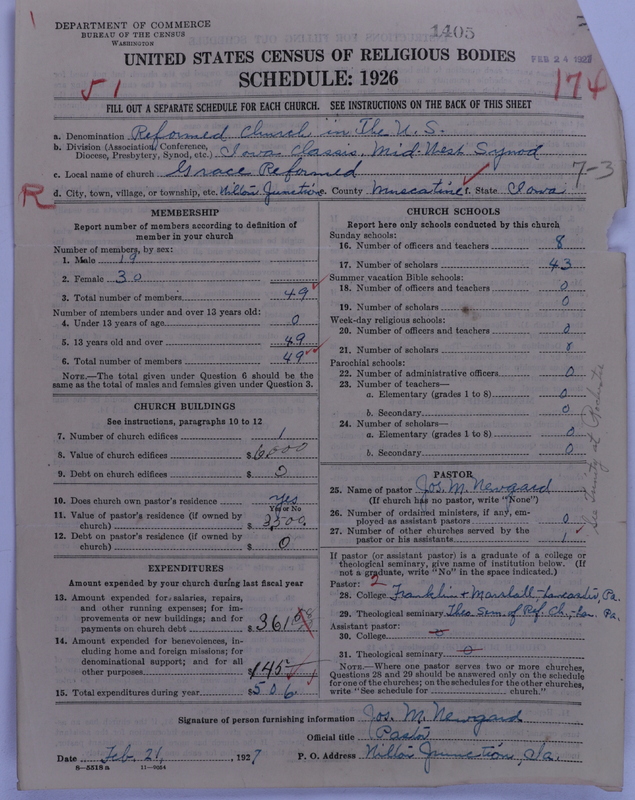 DEPARTMENT OF COMMERCE
BUREAU OF THE CENSUS
WASHINGTON
1405
FEB 24 1927
UNITED STATES CENSUS OF RELIGIOUS BODIES
SCHEDULE: 1926
51
174
FILL OUT A SEPARATE SCHEDULE FOR EACH CHURCH. SEE INSTRUCTIONS ON THE BACK OF THIS SHEET
a. Denomination Reformed Church in The U. S.
b. Division (Association, Conference, Diocese, Presbytery, Synod, etc.) Iowa Classis, Mid-West Synod
c. Local name of church Grace Reformed
7-3
R
d. City, town, village, or township, etc. Wilton Junction e. County Muscatine f. State Iowa
MEMBERSHIP
Report number of members according to definition of
member in your church
Number of members, by sex:
1. Male 19
2. Female 30
3. Total number of members 49
Number of members under and over 13 years old:
4. Under 13 years of age 0
5. 13 years old and over 49
6. Total number of members 49
NOTE.—The total given under Question 6 should be the
same as the total of males and females given under Question 3.
CHURCH BUILDINGS
See instructions, paragraphs 10 to 12
7. Number of church edifices 1
8. Value of church edifices $ 6000
9. Debt on church edifices $ 0
10. Does church own pastor's residence yes
Yes or No
11. Value of pastor's residence (if owned by
church) $ 3,500
12. Debt on pastor's residence (if owned by
church) $ 0
EXPENDITURES
Amount expended by your church during last fiscal year
13. Amount expended for salaries, repairs,
and other running expenses; for im-
provements or new buildings; and for
payments on church debt $ 361
14. Amount expended for benevolences, in-
cluding home and foreign missions; for
denominational support; and for all
other purposes $ 145
15. Total expenditures during year $ 506
CHURCH SCHOOLS
Report here only schools conducted by this church
Sunday schools:
16. Number of officers and teachers 8
17. Number of scholars 43
Summer vacation Bible schools:
18. Number of officers and teachers 0
19. Number of scholars 0
Week-day religious schools:
20. Number of officers and teachers 0
21. Number of scholars
Parochial schools:
22. Number of administrative officers 0
23. Number of teachers—
a. Elementary (grades 1 to 8) 0
b. Secondary 0
24. Number of scholars—
a. Elementary (grades 1 to 8) 0
b. Secondary 0
PASTOR
25. Name of pastor Jos. M. Newgard
(If church has no pastor, write "None")
26. Number of ordained ministers, if any, em-
ployed as assistant pastors 0
27. Number of other churches served by the
pastor or his assistants 1
If pastor (or assistant pastor) is a graduate of a college or
theological seminary, give name of institution below. (If
not a graduate, write "No" in the space indicated.)
Pastor: 2
28. College Franklin & Marshall, Lancaster, Pa.
29. Theological seminary Theo. Sem. of Ref. Ch., Lan. Pa.
Assistant pastor:
30. College 0
31. Theological seminary 0
NOTE.—Where one pastor serves two or more churches,
Questions 28 and 29 should be answered only on the schedule
for one of the churches; on the schedules for the other churches,
write "See schedule for church."
See Trinity at
Signature of person furnishing information Jos. M. Newgard
Official title Pastor
Date Feb. 21, , 1927 P. O. Address Wilton Junction, Ia.
8—5518 a 11—9084